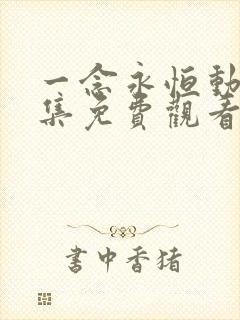 一念永恒動
集免費觀看
書中香豬